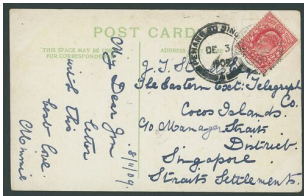 POST CARD
THIS SPACE MAY BE USED
FOR CORRESPONDENCE
ADDRESS
My Dear
8/11/09
with this
best love
Minnie
PENANG TO SING
DE 3
J. T. S
The Eastern Ext: Telegraph
Co.
Cocos Islands.
c/o Manager Straits
District
Singapore
Straits Settlements